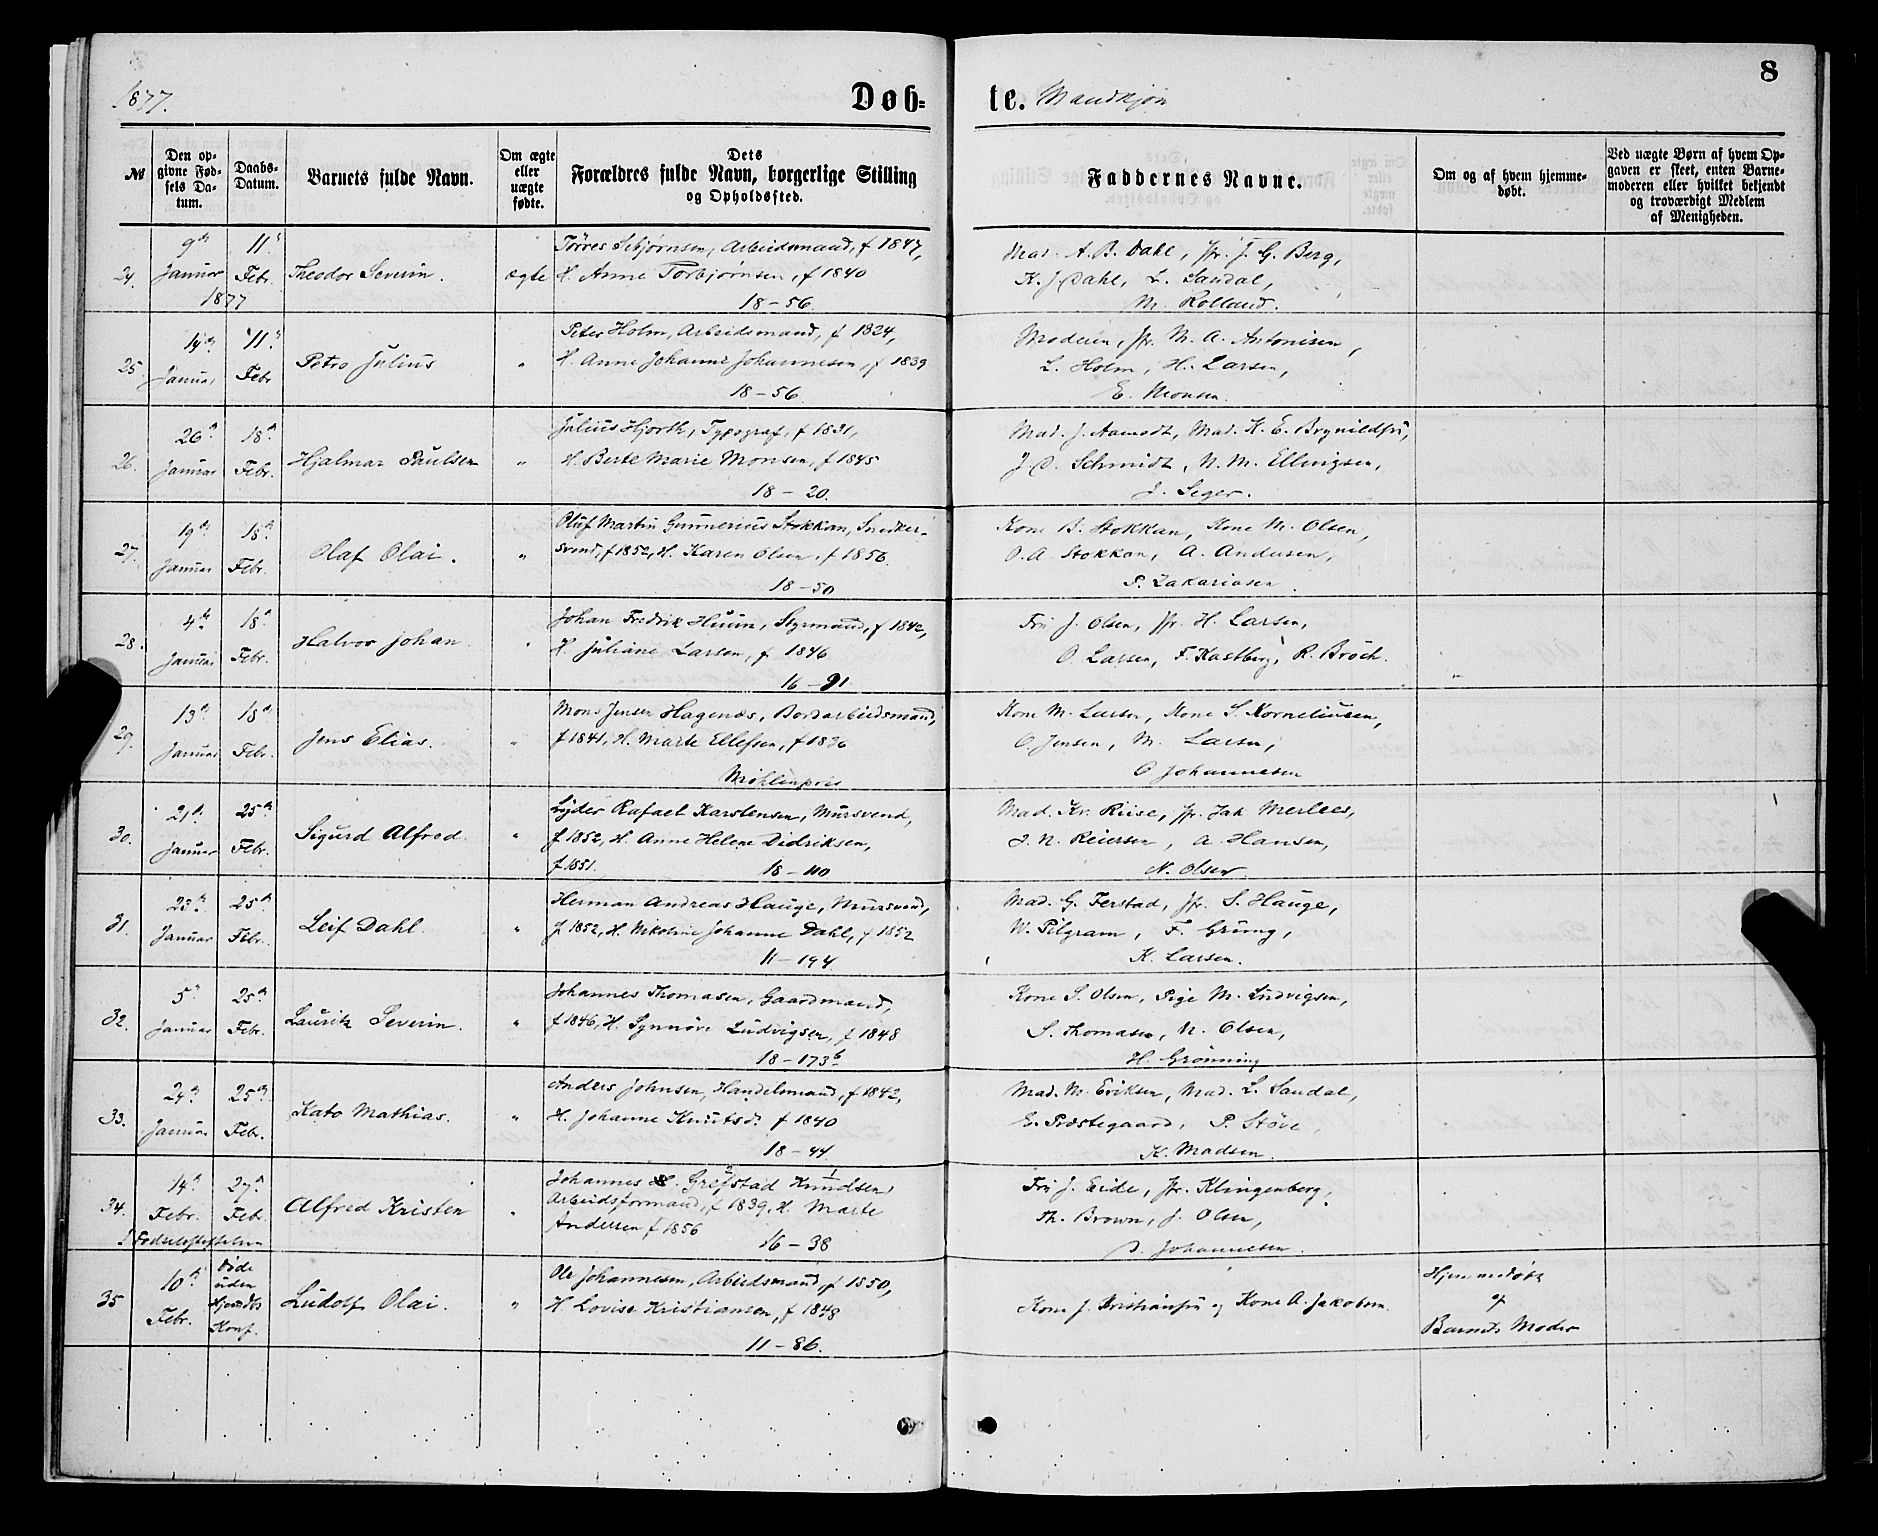 8
1877.
Døbte. Mandkjøn
№
Den opgivne Fødsels Datum.
Daabs-Datum.
Barnets fulde Navn.
Om ægte eller uægte fødte.
Dets Forældres fulde Navn, borgerlige Stilling og Opholdssted.
Faddernes Navne.
Om og af hvem hjemmedøbt.
Ved uægte Børn af hvem Opgaven er skeet, enten Barnemoderen eller hvilket bekjendt og troværdigt Medlem af Menigheden.
24. 9de Januar 1877 11te Febr. Theodor Severin. ægte
Tørres Arbeidsmand, f 1847,
H. Anne Torbjørnsen, f 1840
18-56.
Mad. A. B. Dahl, Jfr. J. G. Berg,
K. J. Dahl, L. Sandal,
M. Rolland.
25 14de Januar 11te Febr Petro Julius "
Peter Holm, Arbeidsmand, f 1824,
H. Anne Johanne Johannesen, f 1839
18-56
Moderen, Jfr. M. A. Antonisen,
L. Holm, H. Larsen,
E. Monsen.
26. 26de Januar 18de Febr. Hjalmar Paulsen "
Julius Hjorth, Typograf, f 1831,
H. Berte Marie Monsen, f 1845
18-20.
Mad. J. Aamodt, Mad. K. E. Brynildsen,
J. D. Schmidt, N. M. Ellingsen,
J. Seger.
27. 19de Januar 18de Febr. Olaf Olai. "
Oluf Martin Gunnerius Stokkan, Snedker-
svend, f 1852, H. Karen Olsen, f 1856.
18-50
Kone B. Stokkan, Kone M. Olsen,
O. A. Stokkan, A. Andersen,
P. Zakariasen.
28. 4de Januar 18de Febr. Halvor Johan "
Johan Fredrik Huun, Styrmand, f 1842,
H. Juliane Larsen, f 1846
16-91
Fru J. Olsen, Jfr. H. Larsen,
O. Larsen, F. Kastberg, R. Broch.
29. 13de Januar 18de Febr. Jens Elias. "
Mons Jensen Hagenæs, Bordarbeidsmand,
f 1841, H. Marte Ellefsen, f 1836
Møhlenpris
Kone M. Larsen, Kone S. Korneliusen,
O. Jensen, M. Larsen,
O Johannesen
30. 21de Januar 25de Febr. Sigurd Alfred "
Lyder Rafael Karstensen, Mursvend,
f 1852, H. Anne Helene Didriksen,
f 1851. 18-110
Mad. Kr. Riise, Jfr. Jak Merlees,
J. N. Reiersen, A. Hansen,
N. Olsen
31. 23de Januar 25de Febr. Leif Dahl. "
Herman Andreas Hauge, Mursvend,
f 1852, H. Nikoline Johanne Dahl, f 1852
11-194
Mad. G. Ferstad, Jfr. S. Hauge,
W. Pilgram, F. Grung,
K. Larsen.
32. 5te Januar 25de Febr. Lauritz Severin. "
Johannes Thomasen, Gaardmand,
f 1846, H. Synnøve Ludvigsen, f 1848
18-173b
Kone S. Olsen, Pige M. Ludvigsen,
S. Thomasen, N. Olsen,
H. Grønning
33. 24de Januar 25de Febr. Kato Mathias. "
Anders Johnsen, Handelsmand, f 1842,
H. Johanne Knutsd. f 1840
18-44
Mad. M. Eriksen, Mad. L. Sandal,
E. Præstegaard, P. Støve,
K. Madsen.
34. 14de Febr. 27de Febr. Alfred Kristen "
I Fødselsstiftelsen
Johannes Grefstad Knudsen,
Arbeidsformand, f 1839, H. Marte
Andersen f 1856 16-38
Fru J. Eide, Jfr. Klingenberg,
Th. Brown, J. Olsen,
D. Johannesen.
35 10de Febr. Døde uden Hjemdbs Konf. Ludolf Olai. "
Ole Johannesen, Arbeidsmand, f 1850,
H. Lovise Kristiansen, f 1848
11-86.
Kone J. Kristiansen og Kone A. Jakobsen.
Hjemmedøbt
af
Barnets Moder